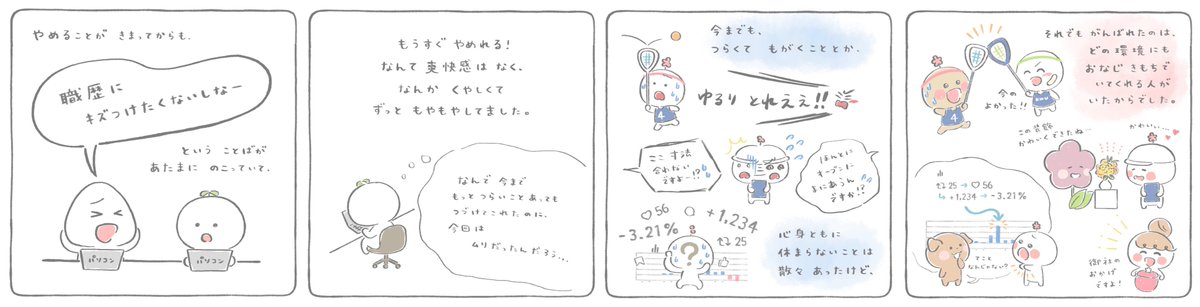 やめることが きまってからも、
職歴に
キズつけたくないしなー
という ことばが
あたまに のこっていて、
パソコン
パソコン
もうすぐ やめれる!
なんて 爽快感は なく、
なんか くやしくて
ずっと もやもやしてました。
なんで 今まで
もっと つらいこと あっても
つづけてこれたのに、
今回は
ムリだったんだろう…。
今までも、
つらくて もがくこととか、
ゆるり とれええ!!
4
ここ 寸法
合わないですよー!?
ほんとに
オープンに
まにあうん
ですか!?
56
-3.21%
+1,234
25
?
心身ともに
休まらないことは
散々 あったけど、
それでも がんばれたのは、
どの 環境にも
おなじ きもちで
いてくれる人が
いたからでした。
今の
よかった!!
4
この 装飾
かわいくできたね…
かわいい…
25 → 56
+1,234 → -3.21%
てこと
なんじゃない?
御社の
おかげ
ですよ!